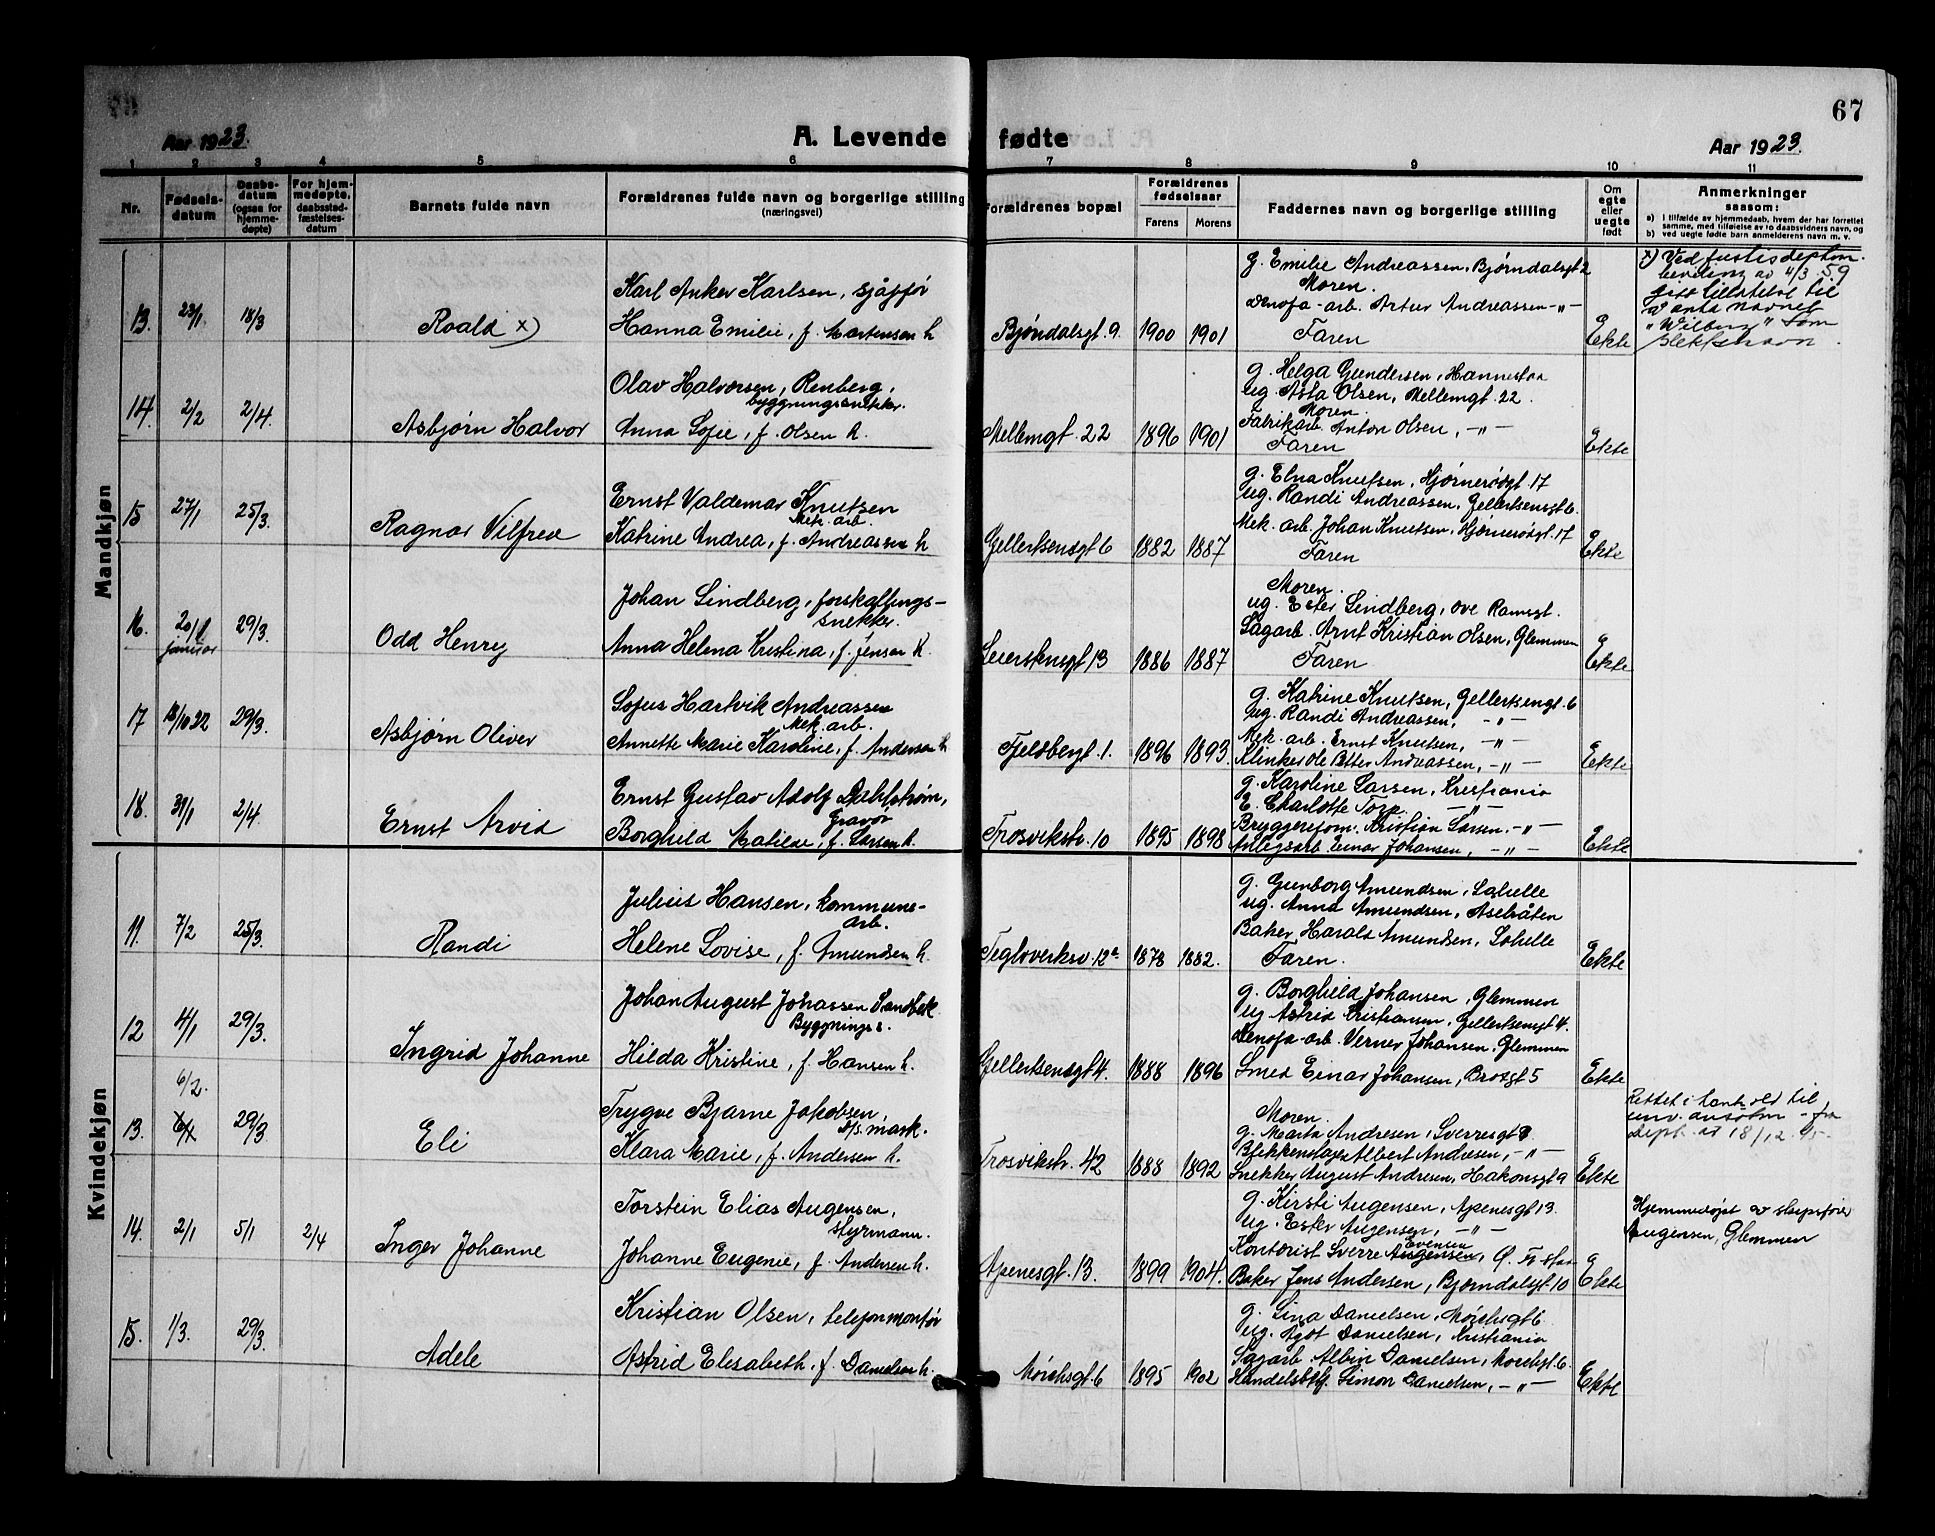 67
Aar 1923.
A. Levende fødte
Aar 1923.
1 2 3 4 5 6 7 8 9 10 11
Nr.
Fødsels-
datum
Daabs-
datum
(ogsaa for
hjemme-
døpte)
For hjem-
medøpte,
daabsstad-
fæstelses-
datum
Barnets fulde navn
Forældrenes fulde navn og borgerlige stilling
(næringsvei)
Forældrenes bopæl
Forældrenes
fødselsaar
Farens Morens
Faddernes navn og borgerlige stilling
Om
egte
eller
uegte
født
Anmerkninger
saasom:
a) i tilfælde av hjemmedaab, hvem der har forrettet
samme, med tilføielse av to daabsvidners navn, og
b) ved uegte fødte barn anmelderens navn m. v.
Mandkjøn
13. 23/1 18/3
Roald x)
Karl Anker Karlsen, sjåffør
Hanna Emilie, f. Mortensen h
Bjøndalsgt. 9. 1900 1901
g. Emilie Andreassen, Bjørndalsgt 2
Moren.
Denofa-arb. Artur Andreassen -"-
Faren
Ekte
x) Ved justisdeptm.
bevilling av 4/3 59
gitt tillatelse til
å anta navnet
"Wilberg" som
slektsnavn.
14. 2/2 2/4.
Asbjørn Halvor
Olav Halvorsen, Renberg,
bygningssnekker.
Anna Sofie, f. Olsen h.
Mellemgt. 22 1896 1901
g. Helga Gundersen, Hannestaa
ug. Asta Olsen, Mellemgt. 22.
Moren.
Fabrikarb Anton Olsen, -"-
Faren
Ekte
15 27/1 25/3.
Ragnar Vilfred
Ernst Valdemar Knutsen
Mek. arb.
Katrine Andrea, f. Andreassen h
Gellertsensgt 6 1882 1887
g. Elna Knutsen, Hjørnerødgt. 17
ug. Randi Andreassen, Gellertsensgt 6.
Mek. arb. Johan Knutsen, Hjørnerødgt. 17
Faren
Ekte
16. 20/1 januar 29/3.
Odd Henry
Johan Lindberg, forskallings-
snekker.
Anna Helena Kristina, f. Jensen h.
13 1886 1887
Moren.
ug. Ester Lindberg, Ove Ramsgt.
Sagarb. Arnt Kristian Olsen, Glemmen
Faren
Ekte
17 18/10 22 29/3.
Asbjørn Oliver
Sofus Hartvik Andreassen
Mek. arb.
Annette Marie Karoline, f. Andersen h
Fjeldbergt. 1. 1896 1893.
g. Katrine Knutsen, Gellertsengt. 6
ug. Randi Andreassen, -"-
Mek. arb. Ernst Knutsen, -"-
Klinker Ole Petter Andreassen, -"-
Ekte
18. 31/1 2/4.
Ernst Arvid
Ernst Gustav Adolf Dahlstrøm,
Gravør
Borghild Matilde, f. Larsen h.
Trosvikstr. 10 1895 1898
g. Karoline Larsen, Kristiania
E. Charlotte Torp. -"-
Bryggereform. Kristian Larsen. -"-
Anlegsarb. Einar Johansen, -"-
Ekte
Kvindekjøn
11. 7/2 25/3.
Randi
Julius Hansen, kommune-
arb.
Helene Lovise, f. Amundsen h.
Teglverksv. 12a 1878 1882.
g. Gunborg Amundsen, Labelle
ug. Anna Amundsen,
Baker Harald Amundsen, Labelle
Faren.
Ekte
12 4/1 29/3.
Ingrid Johanne
Johan August Johassen Sandbek
Byggnings s.
Hilda Kristine, f. Hansen h.
Gellertsensgt 4. 1888 1896
g. Borghild Johansen, Glemmen
ug Astrid Kristiansen, Gellertsengt 4.
Denofa-arb. Verner Johansen, Glemmen
Smed Einar Johansen, Brodgt 5
Ekte
6/2.
13. 29/3
Eli
Trygve Bjarne Jakobsen,
d/s. mask.
Klara Marie, f. Andersen h.
Trosvikstr. 42 1888 1892
Moren.
g. Marta Andresen, Sverresgt 8
Blikkenslager Albert Andresen, -"-
Snekker August Andresen, Hakonsgt 9
Ekte
Rettet i henhold til
fra
dept. av 18/12. 45.
14. 2/1 5/1 2/4
Inger Johanne
Torstein Elias Augensen,
styrmann.
Johanne Eugenie, f. Andersen h.
Apenesgt. 13. 1899 1904.
g. Kirsti Augensen, Apenesgt 13.
ug. Ester Augensen, -"-
Evensen
Kontorist Sverre Augensen,
Baker Jens Andersen, Bjørndalsgt 10
Ekte
Hjemmedøpt av skipsfører
Augensen, Glemmen
15. 1/3. 29/3.
Adele
Kristian Olsen, telefonmontør
Astrid Elisabeth, f. Danielsen h.
Mørchsgt 6 1895 1902
g. Lina Danielsen, Mørchsgt 6
ug. Agot Danielsen, Kristiania
Sagarb. Albin Danielsen, Morchgt 6.
Handelsbtj. Simon Danielsen, -"-
Ekte